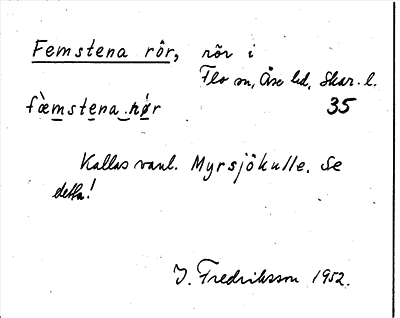 Femstena rör, rör i
Flo sn, Åse hd, Skar. l.
fæ̀mstena hǿr 35
Kallas vanl. Myrsjökulle. Se
detta!
J. Fredriksson 1952.